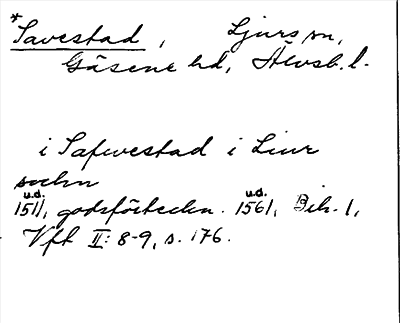 *Savestad, Ljurs sn,
Gäsene hd, Älvsb. l.
i Safwestad i Liur
sochn
u.d. u.d.
1511, godsförteckn. 1561, Bih. 1,
Vft II: 8-9, s. 176.